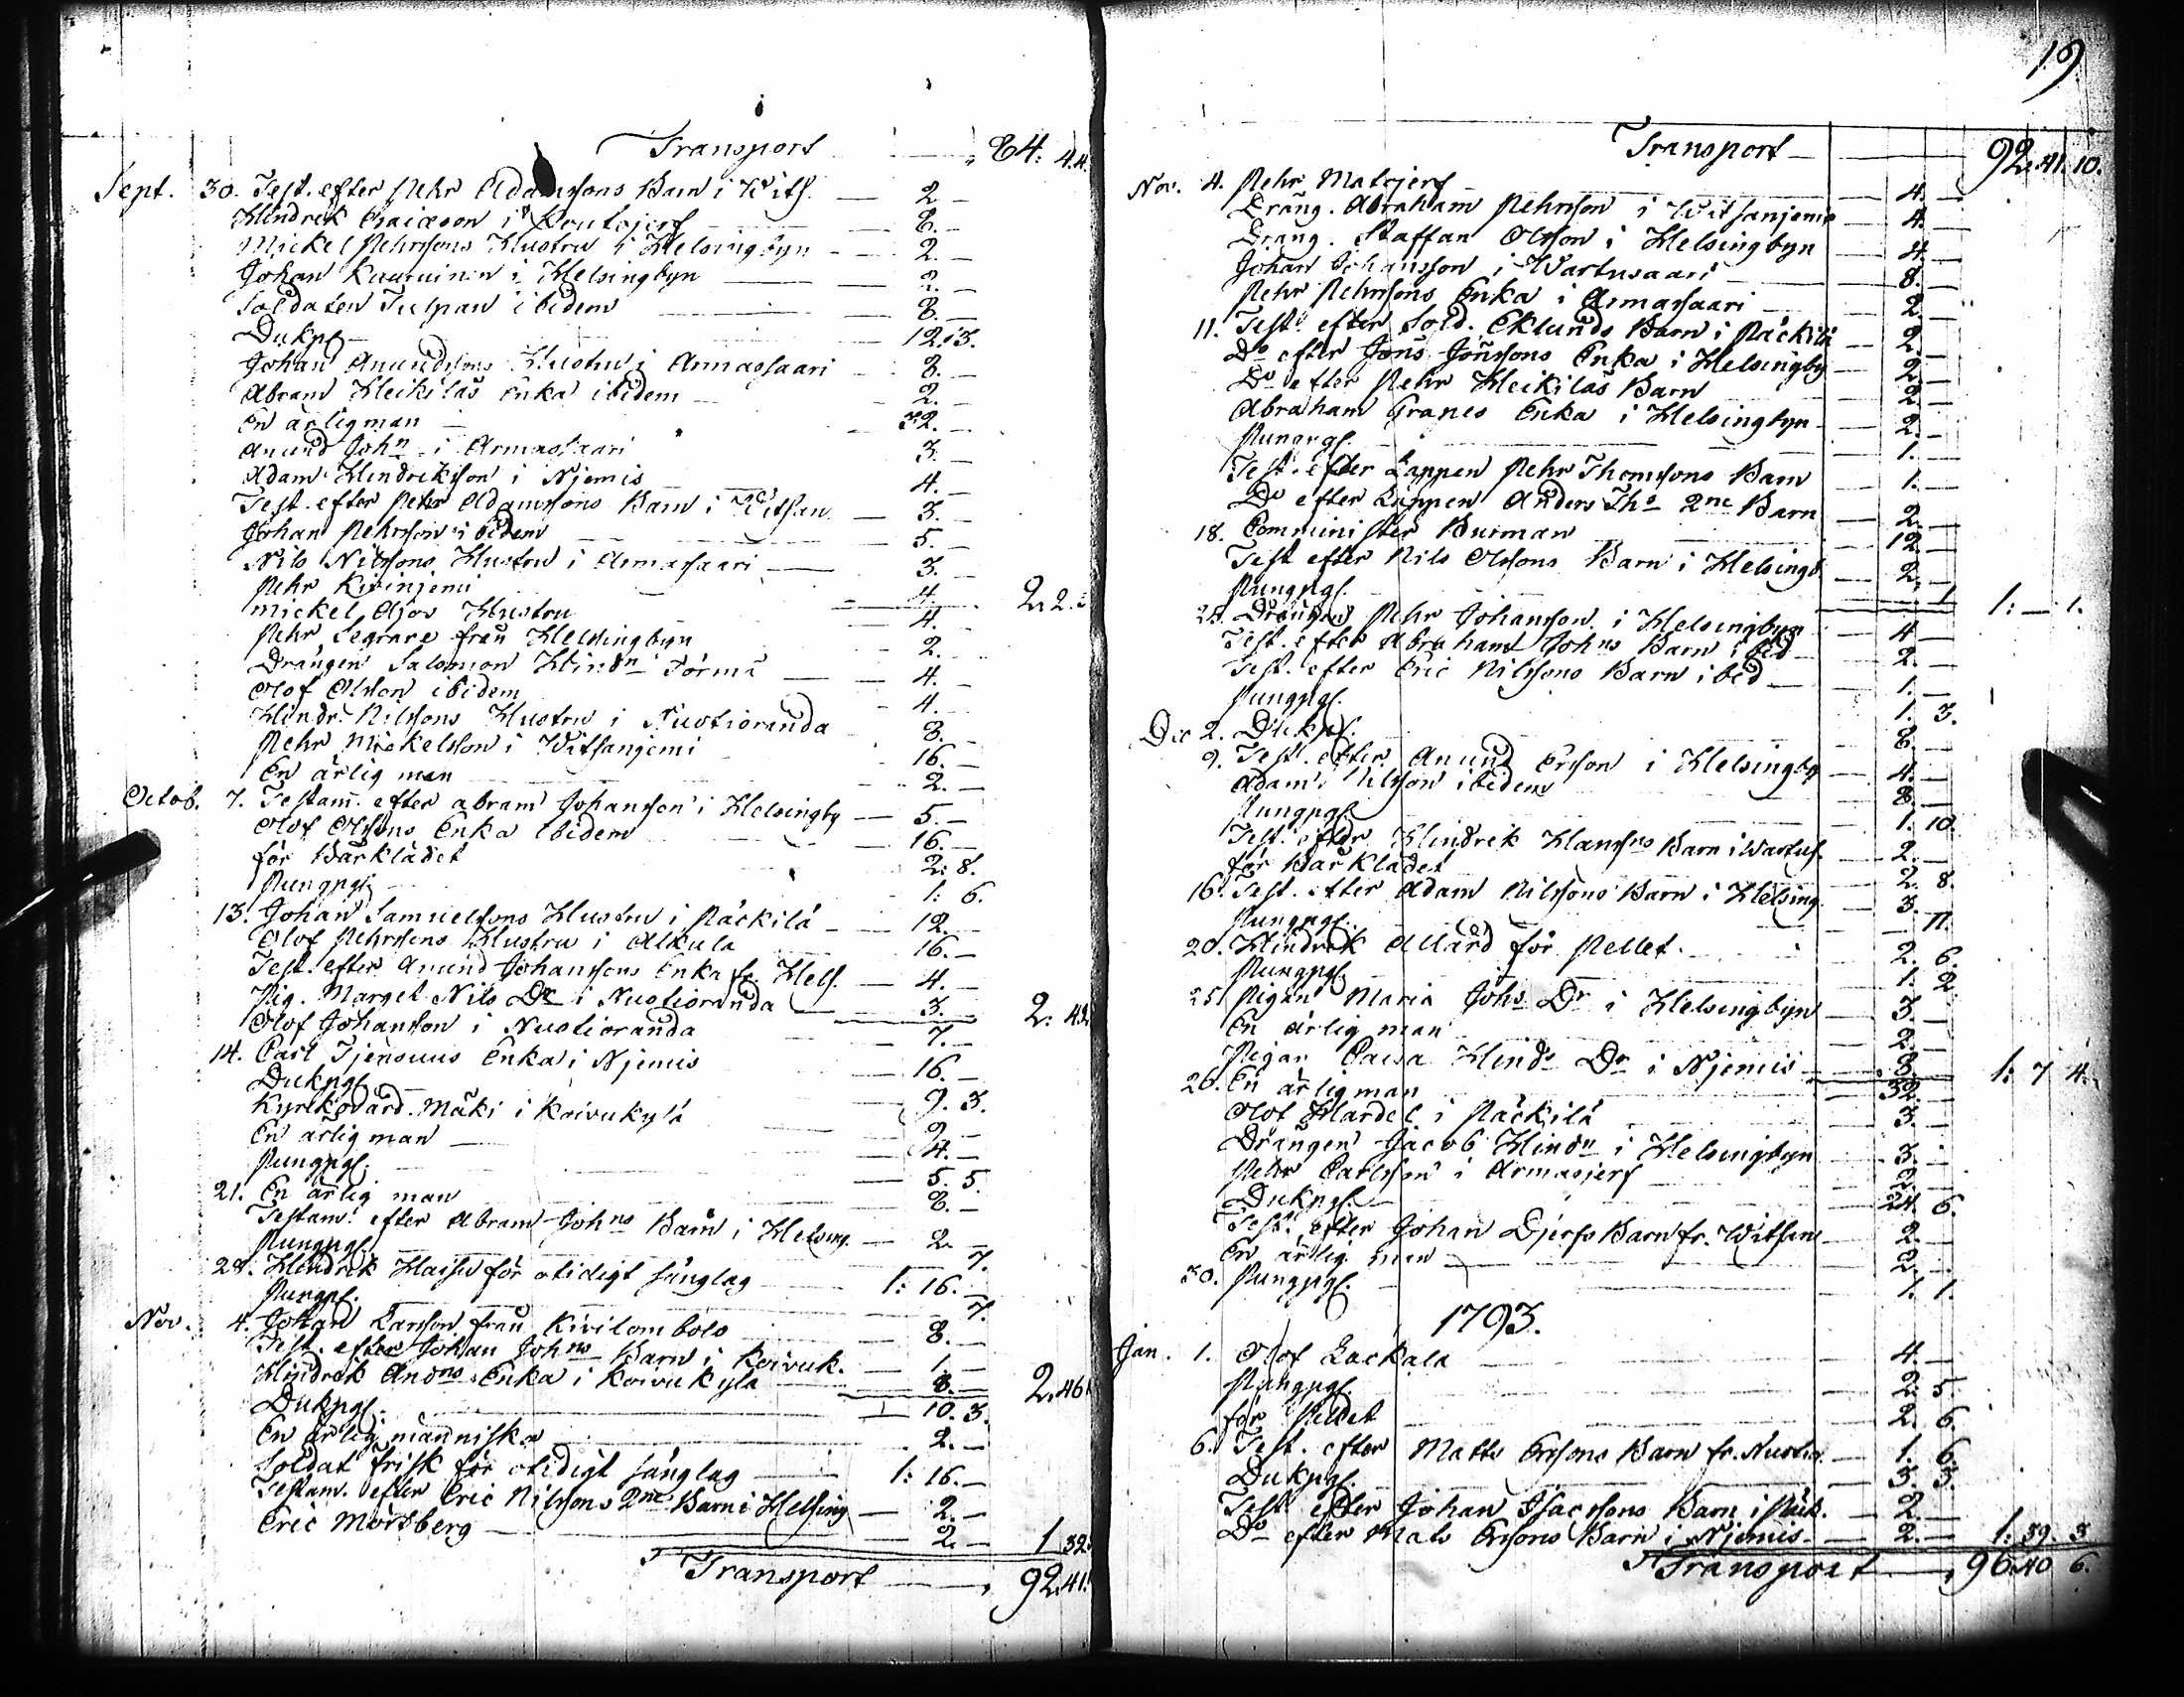 Transport — 84: 44.
Sept. 30. Test. efter Pehr Adamssons Barn i Wits. — 2 —
Hindrek i — 8. —
Mickel Pehrssons Hustru i Helsingbyn — 2. —
Johan i Helsingbyn — 2. —
Soldaten Tulpan ibidem — 8. —
Dukpgr — 12. 3.
Johan Anundssons Hustru i Armassaari — 8. —
Abram Heikiläs Enka ibidem — 2. —
En ärlig man — 32. —
Anund John i Armassaari — 3. —
Adam Hendriksson i Njemis — 4. —
Test. efter Pehr Adamssons Barn i Witsan. — 3. —
Johan Pehrsson ibidem — 5. —
Nils Nilssons Hustru i Armassaari — 3. —
Pehr Kivinjemi — 4. — 2. 2.
Mickel Ajos Hustru — 4. —
Pehr Segrare från Helsingbyn — 2. —
Drängen Salomon Hindn Törmä — 4. —
Olof Olsson ibidem — 4. —
Hindr. Nilssons Hustru i Nuotioranda — 8. —
Pehr Mickelsson i Witsanjemi — 16. —
En ärlig man — 2. —
Octob. 7. Testam. efter Abram Johansson i Helsingby — 5. —
Olof Olssons Enka ibidem — 16. —
för Bårklädet — 2: 8.
Pungpgr — 1: 6.
13. Johan Samuelssons Hustru i Päckilä — 12. —
Olof Pehrssons Hustru i Alkula — 16. —
Test. efter Anund Johanssons Enka fr. Hels. — 4. —
Pig. Marget Nils Dr i Nuotioranda — 3. — 2: 42.
Olof Johansson i Nuotioranda — 7. —
14. Carl Enka i Njemis — 16. —
Dukpgr. — 9. 3.
Kyrkovärd. Mäki i Koivukylä — 2. —
En ärlig man — 4. —
Pungpgr. — 5. 5.
21. En ärlig man — 8. —
Testam. efter Abram Johns Barn i Helsing. — 2. —
Pungpgr. — 7.
28. Hindrik för otidigt sänglag — 1: 16. —
Pungpgr. — 7.
Nov. 4. Johan Larsson från Kivilombolo — 8. —
Test. efter Johan Johns Barn i Koivuk. — 1. —
Hindrik Andns Enka i Koivukylä — 8. — 2. 46
Dukpgr. — 10. 3.
En ärlig människa — 2. —
Soldat Frisk för otidigt sänglag — 1: 16. —
Testam. efter Eric Nilssons 2ne Barn i Helsing — 2. —
Eric Mörtberg — 2. — 1 32.
Transport — 92. 41.
19
Transport — 92. 41. 10.
Nov. 4. Pehr Matojerf — 4. —
Dräng. Abraham Pehrsson i Witsanjemi — 4. —
Dräng. Staffan Olsson i Helsingbyn — 4. —
Johan Johansson i Wartusaari — 8. —
Pehr Pehrssons Enka i Armassaari — 2. —
11. Test. efter Sold. Eklunds Barn i Päckilä — 2. —
Do efter Jöns Jönssons Enka i Helsingby — 2. —
Do efter Pehr Heikiläs Barn — 2. —
Abraham Granes Enka i Helsingbyn — 2. —
Pungpgr. — 1. —
Test. efter Lappen Pehr Thomssons Barn — 1. —
Do efter Lappen Anders Ths 2ne Barn — 2. —
18. Comminister Burman — 12. —
Test efter Nils Olssons Barn i Helsingb. — 2. —
Pungpgr. — 1 1: — 1.
25. Drängen Pehr Johansson i Helsingbyn — 4 —
Test. efter Abraham Johns Barn ibid — 2. —
Test. efter Eric Nilssons Barn ibid — 1. —
Pungpgr. — 1. 3.
Dec 2. Dukpgr. — 8. —
9. Test. efter Anund Ersson i Helsingby — 4. —
Adam Nilsson ibidem — 8. —
Pungpgr. — 1. 10.
Test. efter Hindrik Hanssns Barn i Wartus. — 2. —
för Bårklädet — 2. 8.
16. Test. efter Adam Nilssons Barn i Helsing. — 3. —
Pungpgr. — 11.
20. Hindrik Allard för Pellet — 2. 6.
Pungpgr. — 1. 2
25. Pigan Maria Johs Dr i Helsingbyn — 3. —
En ärlig man — 2. —
Pigan Caisa Hinds Dr i Njemis — 8. — 1: 7 4.
26. En ärlig man — 32. —
Olof i Päckilä — 3. —
Drängen Jacob Hindn i Helsingbyn — 3. —
Pehr Carlsson i Armasjerf — 3. —
Dukpgr. — 24. 6.
Test. efter Johan Djerfs Barn fr. Witsan — 2. —
En ärlig man — 2. —
30. Pungpgr. — 1. 1.
1793.
Jan. 1. Olof Lackala — 4. —
Pungpgr. — 2. 5.
för Pellet — 2. 6.
6. Test. efter Matts Erssons Barn fr. Nuotio. — 1. 6.
Dukpgr. — 3. 3.
Test. efter Johan Isacssons Barn i Päck. — 2. —
Do efter Mats Erssons Barn i Njemis — 2. — 1: 39. 3
Transport — 96. 40 6.